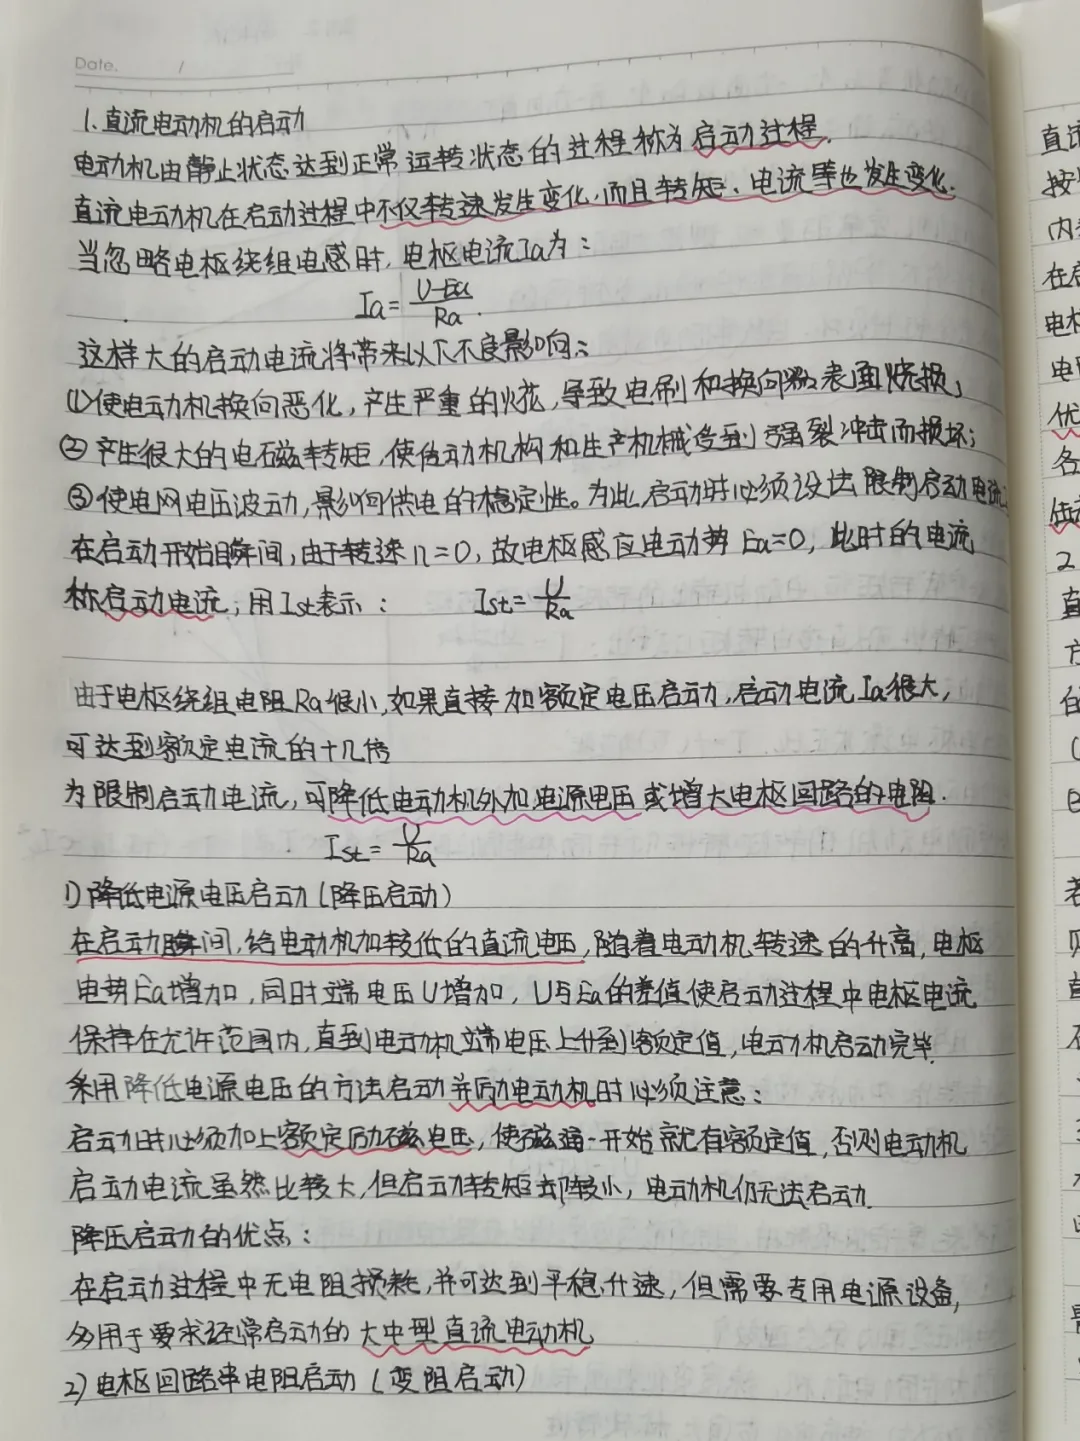 Date. /
1.直流电动机的启动
电动机由静止状态达到正常运转状态的过程称为启动过程.
直流电动机在启动过程中不仅转速发生变化,而且转矩、电流等也发生变化.
当忽略电枢绕组电感时,电枢电流Ia为:
Ia=(U-Ea)/Ra.
这样大的启动电流将带来以下不良影响:
(1)使电动机换向恶化,产生严重的火花,导致电刷和换向器表面烧损;
②产生很大的电磁转矩,使传动机构和生产机械受到强裂冲击而损坏;
③使电网电压波动,影响供电的稳定性。为此,启动时必须设法限制启动电流.
在启动开始瞬间,由于转速n=0,故电枢感应电动势Ea=0,此时的电流
称启动电流,用Ist表示: Ist=U/Ra
由于电枢绕组电阻Ra很小,如果直接加额定电压启动,启动电流Ia很大,
可达到额定电流的十几倍
为限制启动电流,可降低电动机外加电源电压或增大电枢回路的电阻.
Ist=U/Ra
1)降低电源电压启动(降压启动)
在启动瞬间,给电动机加较低的直流电压,随着电动机转速的升高,电枢
电势Ea增加,同时端电压U增加,U与Ea的差值使启动过程中电枢电流
保持在允许范围内,直到电动机端电压上升到额定值,电动机启动完毕.
采用降低电源电压的方法启动并励电动机时必须注意:
启动时必须加上额定励磁电压,使磁通一开始就有额定值,否则电动机
启动电流虽然比较大,但启动转矩却较小,电动机仍无法启动.
降压启动的优点:
在启动过程中无电阻损耗,并可达到平稳升速,但需要专用电源设备,
多用于要求经常启动的大中型直流电动机
2)电枢回路串电阻启动(变阻启动)
直流
按
内
在启
电枢
电阻
优
各
2
直
方
的